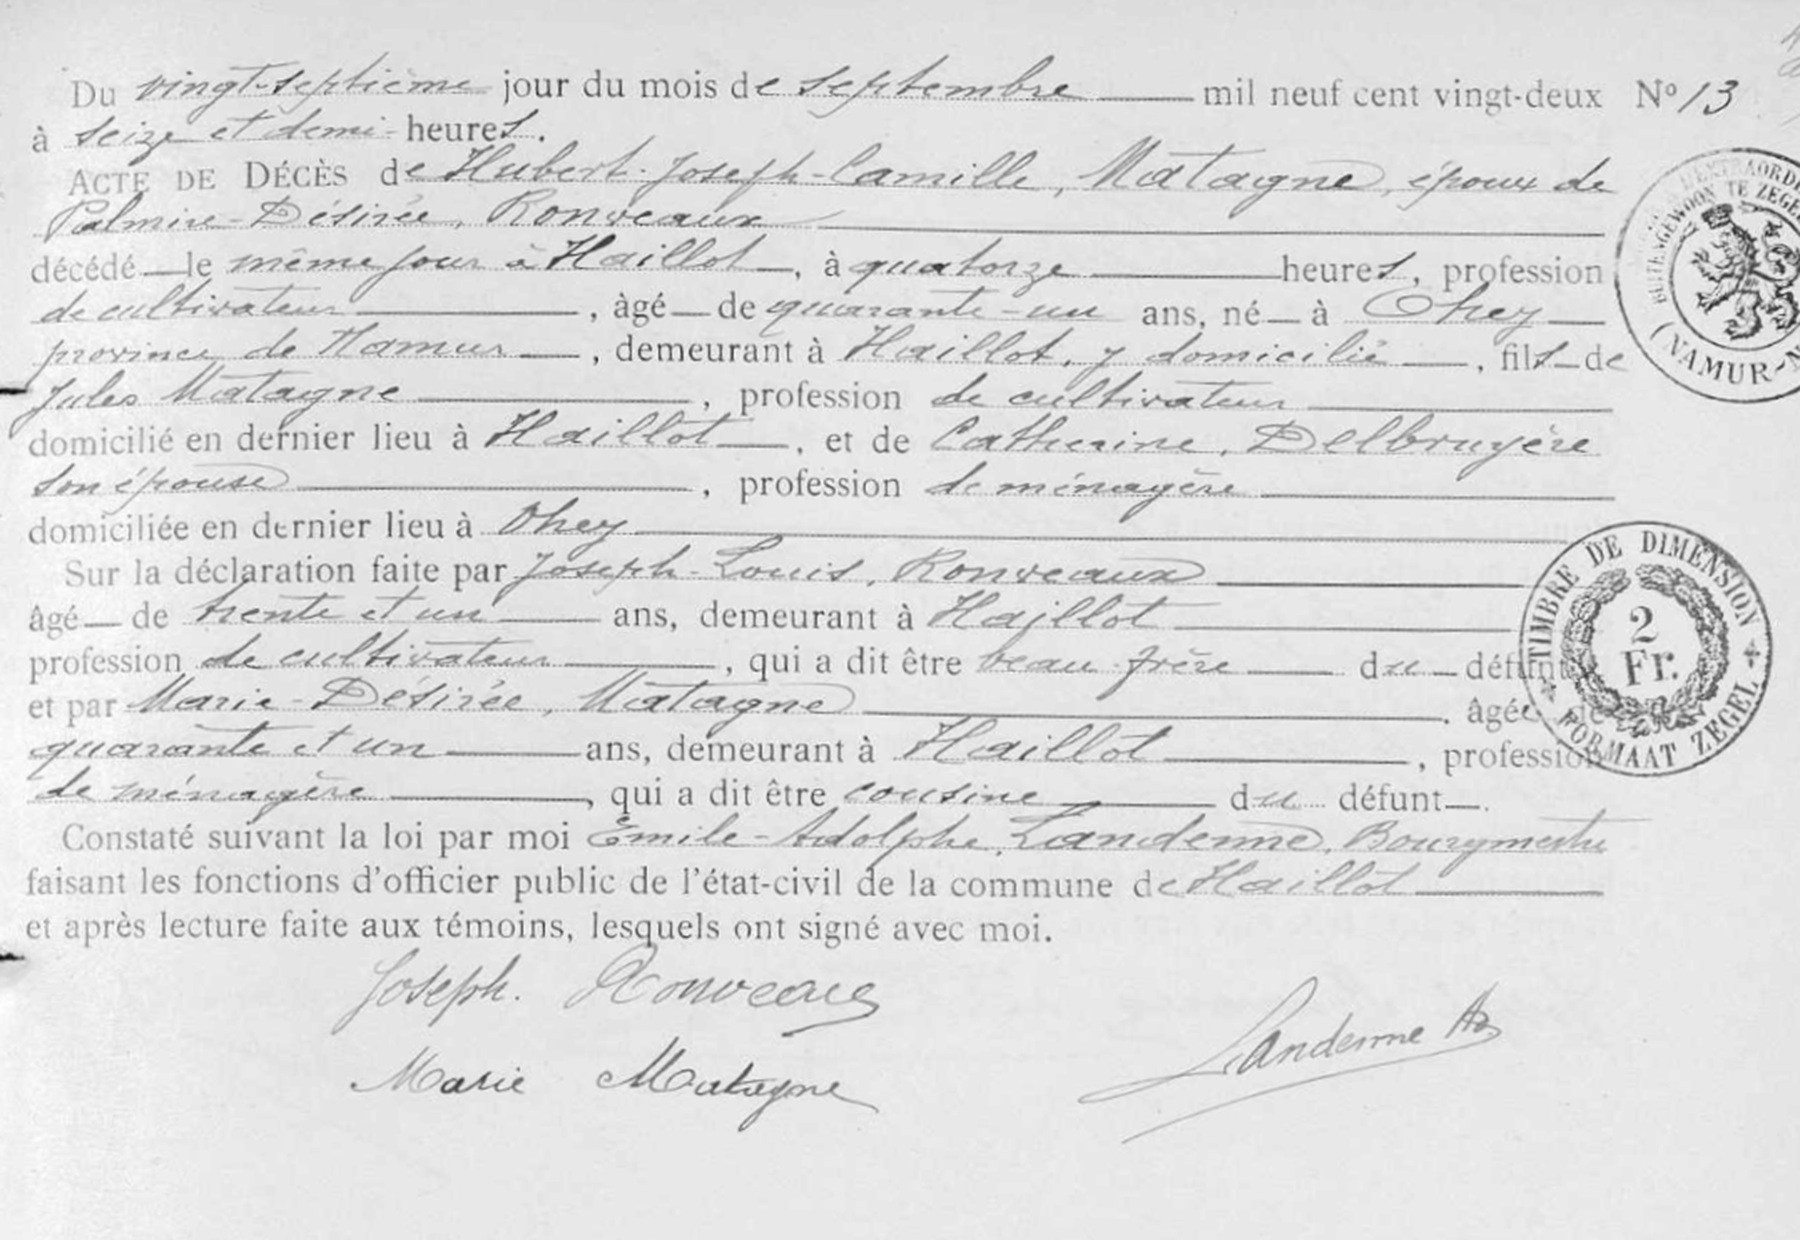 Du vingt-septième jour du mois de septembre mil neuf cent vingt-deux N° 13
à seize et demi heures.
ACTE DE DÉCÈS de Hubert-Joseph-Camille, Matagne, époux de
Palmire-Désirée, Ronveaux
décédé le même jour à Haillot, à quatorze heures, profession
de cultivateur, âgé de quarante-un ans, né à Ohey
province de Namur, demeurant à Haillot, y domicilié, fils de
Jules Matagne, profession de cultivateur
domicilié en dernier lieu à Haillot, et de Catherine, Delbruyère
son épouse, profession de ménagère
domiciliée en dernier lieu à Ohey
Sur la déclaration faite par Joseph-Louis, Ronveaux
âgé de trente et un ans, demeurant à Haillot
profession de cultivateur, qui a dit être beau-frère du défunt
et par Marie-Désirée, Matagne, âgée de
quarante et un ans, demeurant à Haillot, profession
de ménagère, qui a dit être cousine du défunt.
Constaté suivant la loi par moi Emile-Adolphe, Landenne, Bourgmestre
faisant les fonctions d'officier public de l'état-civil de la commune de Haillot
et après lecture faite aux témoins, lesquels ont signé avec moi.
Joseph. Ronveaux
Marie Matagne
Landenne
BUITENGEWOON TE ZEGEL
(NAMUR-N
TIMBRE DE DIMENSION
2
Fr.
FORMAAT ZEGEL